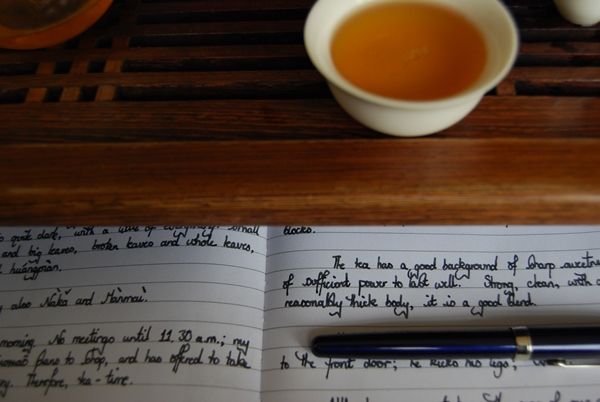 quite dark, with a
small
and big leaves, broken leaves and whole leaves,
huángpiàn.
also Nàkǎ and Mànmài.
morning. No meetings until 11.30 a.m.; my
plans to shop, and has offered to take
Therefore, tea-time.
blocks.
The tea has a good background of sharp
of sufficient power to last well. Strong, clean, with a
reasonably thick body, it is a good blend.
to the front door; he kicks his legs,